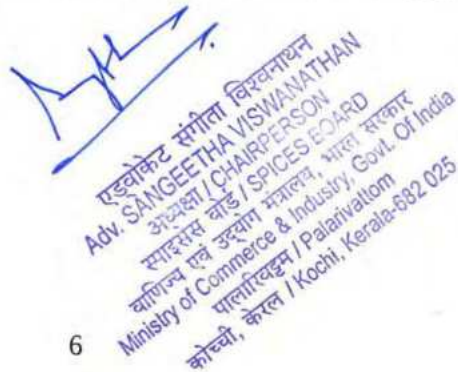 एडवोकेट संगीता विश्वनाथन
Adv. SANGEETHA VISWANATHAN
अध्यक्षा / CHAIRPERSON
स्पाइसेस बोर्ड / SPICES BOARD
वाणिज्य एवं उद्योग मंत्रालय, भारत सरकार
Ministry of Commerce & Industry, Govt. Of India
पालारिवट्टम / Palarivattom
कोच्ची, केरल / Kochi, Kerala-682 025
6